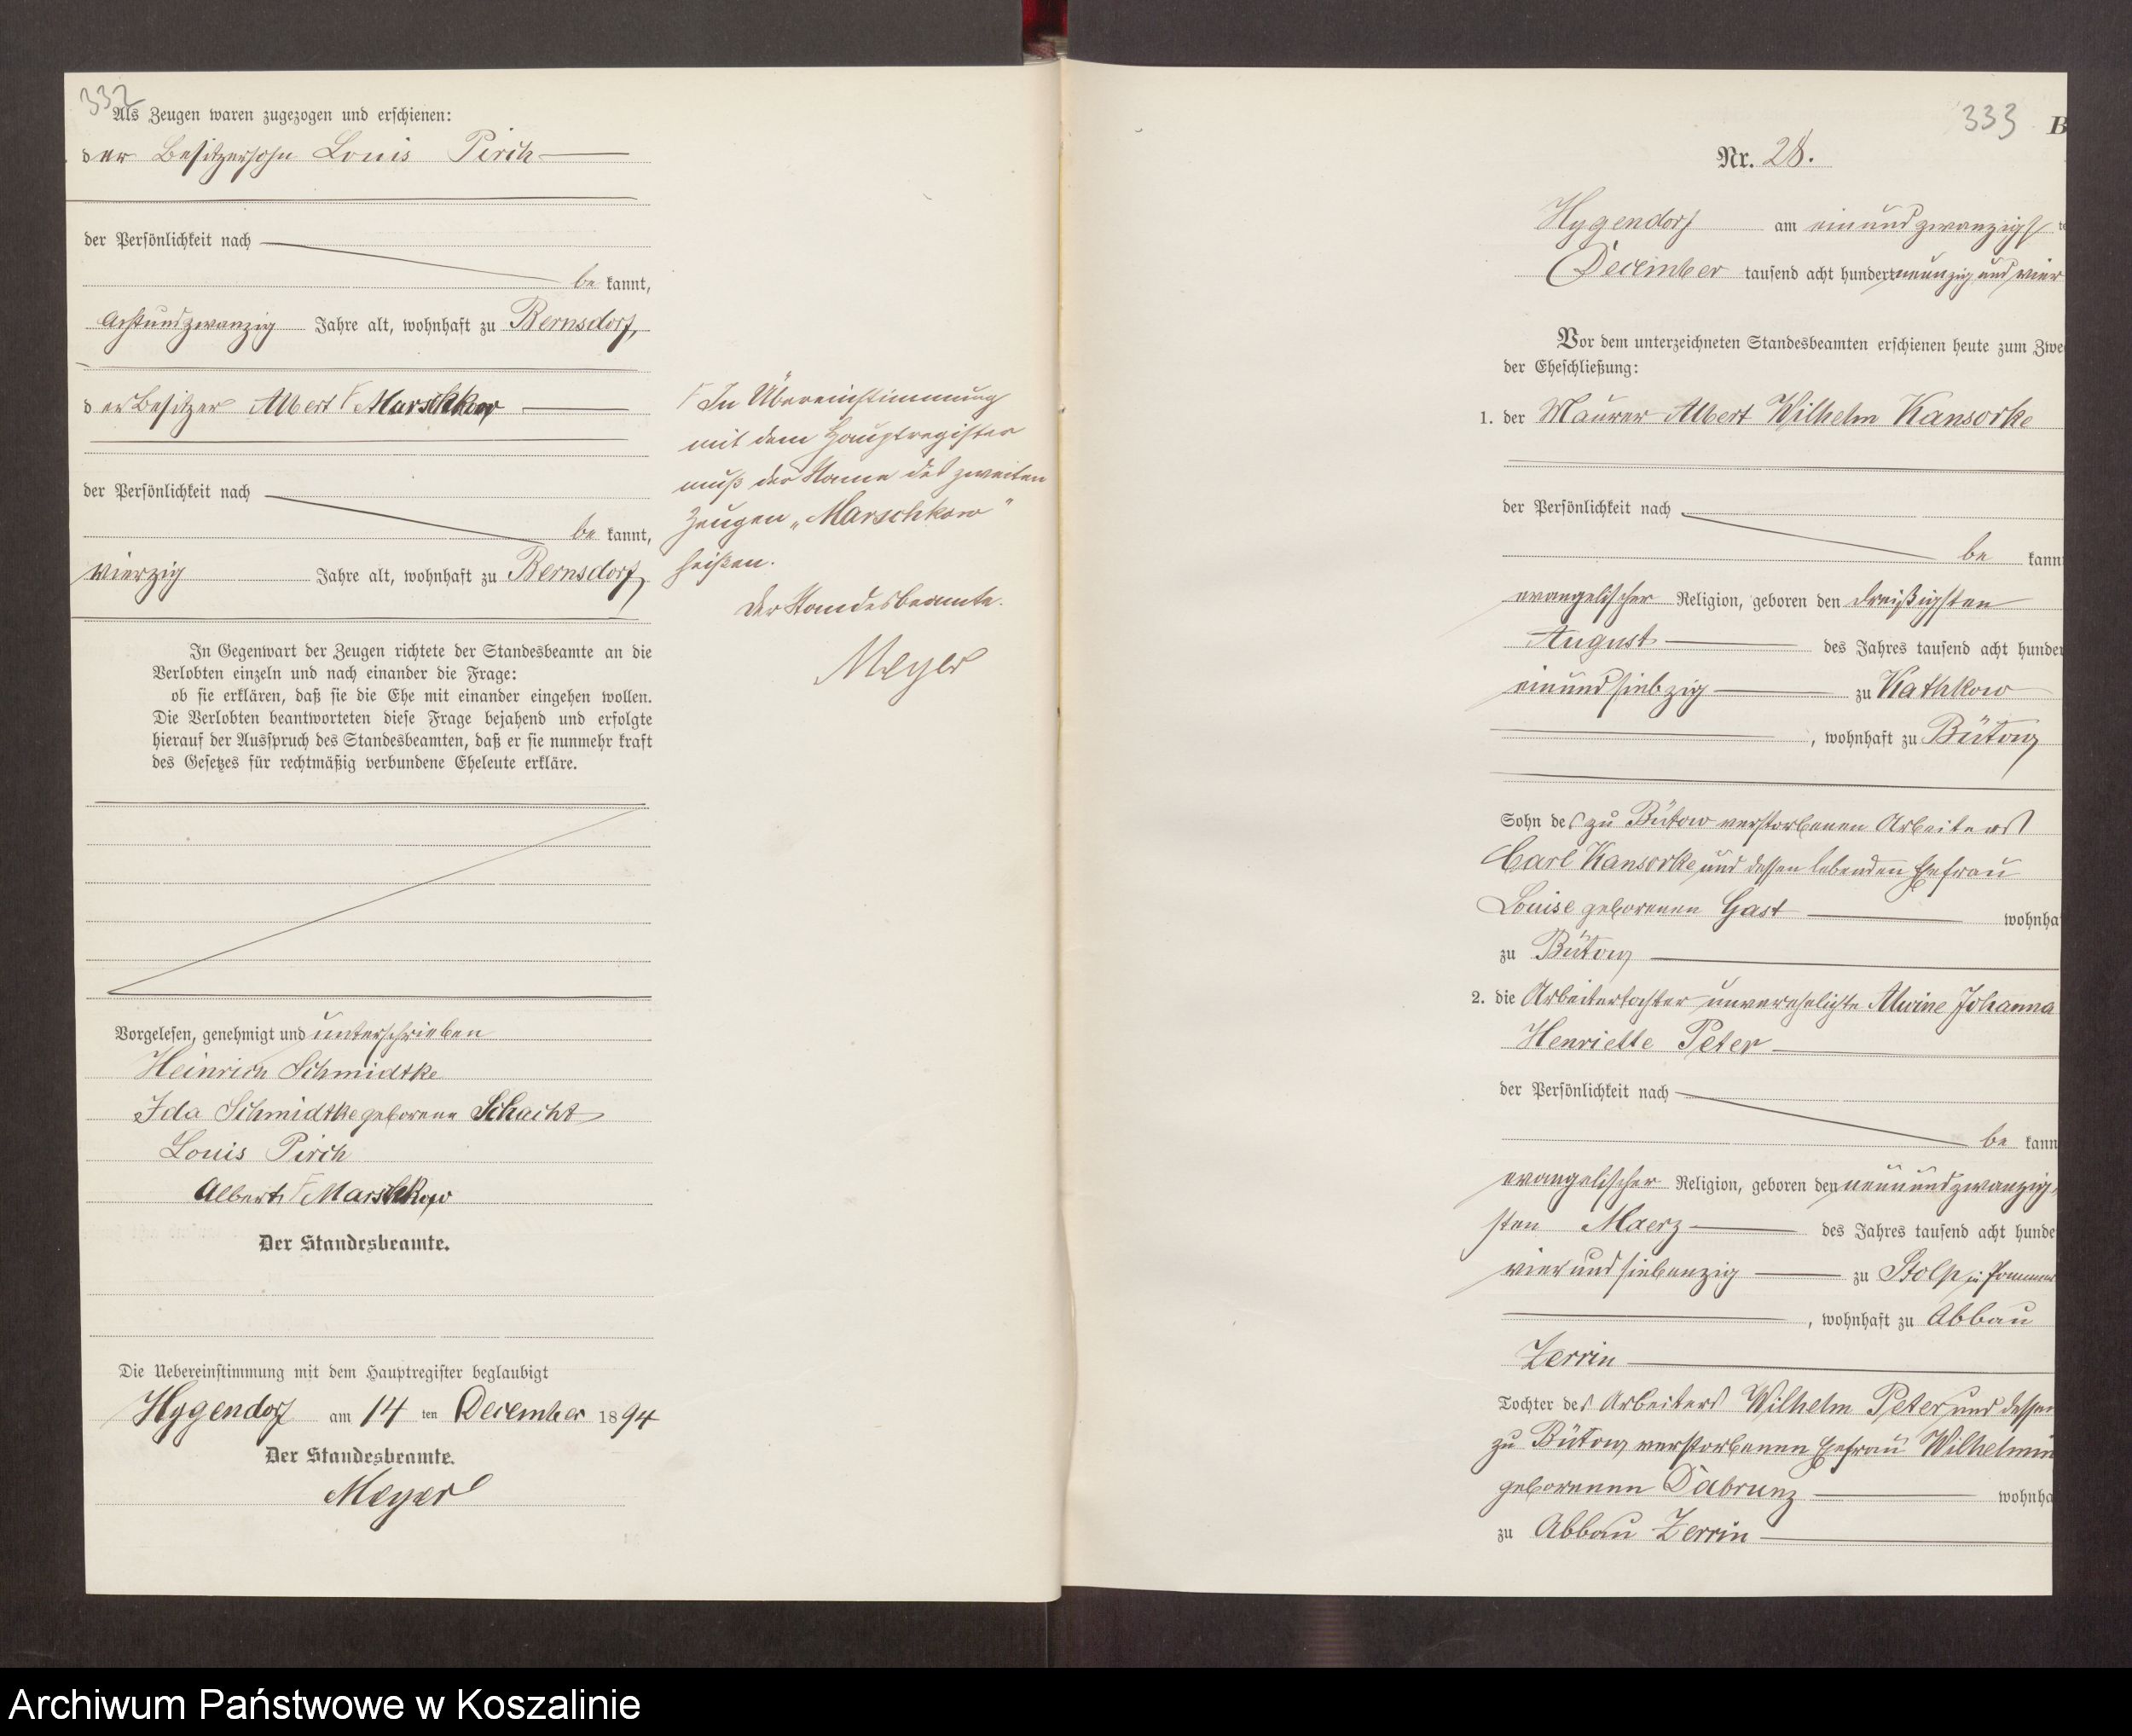 332
Als Zeugen waren zugezogen und erschienen:
der Besitzersohn Louis Pirch
der Persönlichkeit nach
be kannt,
achtundzwanzig Jahre alt, wohnhaft zu Bernsdorf,
der Besitzer Albert Γ Marschkow
der Persönlichkeit nach
be kannt,
vierzig Jahre alt, wohnhaft zu Bernsdorf
In Gegenwart der Zeugen richtete der Standesbeamte an die
Verlobten einzeln und nach einander die Frage:
ob sie erklären, daß sie die Ehe mit einander eingehen wollen.
Die Verlobten beantworteten diese Frage bejahend und erfolgte
hierauf der Ausspruch des Standesbeamten, daß er sie nunmehr kraft
des Gesetzes für rechtmäßig verbundene Eheleute erkläre.
Vorgelesen, genehmigt und unterschrieben
Heinrich Schmidtke
Ida Schmidtke geborene Schacht
Louis Pirch
Albert Γ Marschkow
Der Standesbeamte.
Die Uebereinstimmung mit dem Hauptregister beglaubigt
Hygendorf am 14 ten December 1894
Der Standesbeamte.
Meyer
Γ In Übereinstimmung
mit dem Hauptregister
muß der Name des zweiten
Zeugen „Marschkow"
heißen.
Der Standesbeamte.
Meyer
333 B
Nr. 28.
Hygendorf am einundzwanzigsten te
December tausend acht hundert neunzig und vier
Vor dem unterzeichneten Standesbeamten erschienen heute zum Zwe
der Eheschließung:
1. der Maurer Albert Wilhelm Kansorke
der Persönlichkeit nach
be kann
evangelischer Religion, geboren den dreißigsten
August des Jahres tausend acht hunder
einundsiebzig zu Kathkow
, wohnhaft zu Bütow
Sohn des zu Bütow verstorbenen Arbeiters
Carl Kansorke und dessen lebenden Ehefrau
Louise geborenen Gast wohnha
zu Bütow
2. die Arbeitertochter unverehelichte Alwine Johanna
Henriette Peter
der Persönlichkeit nach
be kann
evangelischer Religion, geboren den neunundzwanzig-
sten Maerz des Jahres tausend acht hunde
vierundsiebenzig zu Stolp in Pommern
, wohnhaft zu Abbau
Zerrin
Tochter des Arbeiters Wilhelm Peter und dessen
zu Bütow verstorbenen Ehefrau Wilhelmin
geborenen Dabrunz wohnha
zu Abbau Zerrin
Archiwum Państwowe w Koszalinie